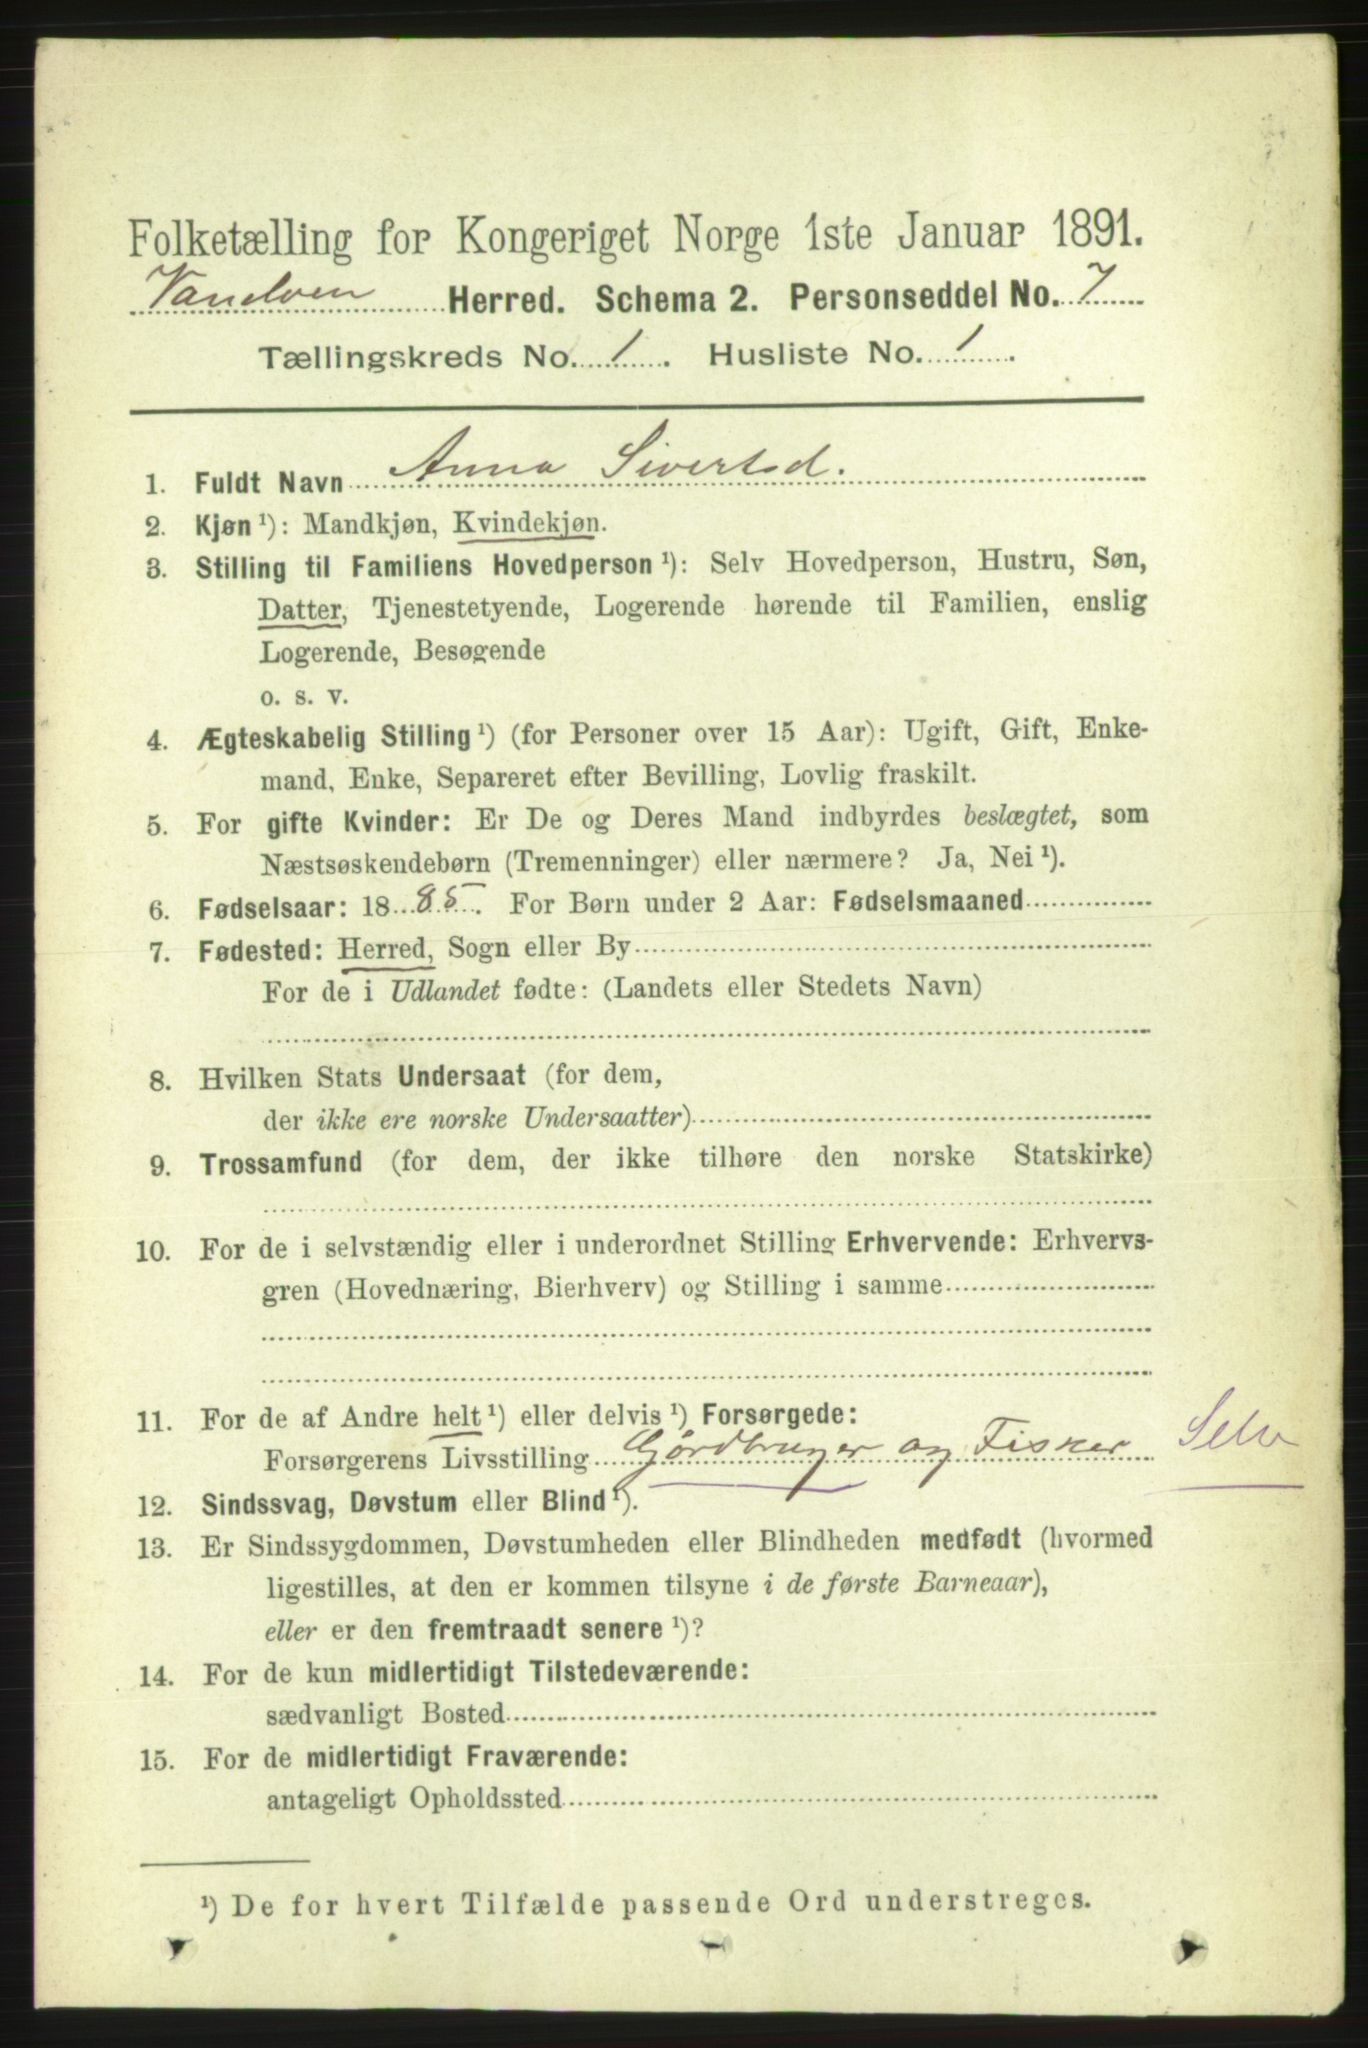 Folketælling for Kongeriget Norge 1ste Januar 1891.
Vandven Herred. Schema 2. Personseddel No. 7
Tællingskreds No. 1. Husliste No. 1.
1. Fuldt Navn Anna Sivertsd.
2. Kjøn ¹): Mandkjøn, Kvindekjøn.
3. Stilling til Familiens Hovedperson ¹): Selv Hovedperson, Hustru, Søn,
Datter, Tjenestetyende, Logerende hørende til Familien, enslig
Logerende, Besøgende
o. s. v.
4. Ægteskabelig Stilling ¹) (for Personer over 15 Aar): Ugift, Gift, Enke-
mand, Enke, Separeret efter Bevilling, Lovlig fraskilt.
5. For gifte Kvinder: Er De og Deres Mand indbyrdes beslægtet, som
Næstsøskendebørn (Tremenninger) eller nærmere? Ja, Nei ¹).
6. Fødselsaar: 1885. For Børn under 2 Aar: Fødselsmaaned
7. Fødested: Herred, Sogn eller By
For de i Udlandet fødte: (Landets eller Stedets Navn)
8. Hvilken Stats Undersaat (for dem,
der ikke ere norske Undersaatter)
9. Trossamfund (for dem, der ikke tilhøre den norske Statskirke)
10. For de i selvstændig eller i underordnet Stilling Erhvervende: Erhvervs-
gren (Hovednæring, Bierhverv) og Stilling i samme
11. For de af Andre helt ¹) eller delvis ¹) Forsørgede:
Forsørgerens Livsstilling Gårdbruger og Fisker Selv
12. Sindssvag, Døvstum eller Blind ¹).
13. Er Sindssygdommen, Døvstumheden eller Blindheden medfødt (hvormed
ligestilles, at den er kommen tilsyne i de første Barneaar),
eller er den fremtraadt senere ¹)?
14. For de kun midlertidigt Tilstedeværende:
sædvanligt Bosted
15. For de midlertidigt Fraværende:
antageligt Opholdssted
¹) De for hvert Tilfælde passende Ord understreges.